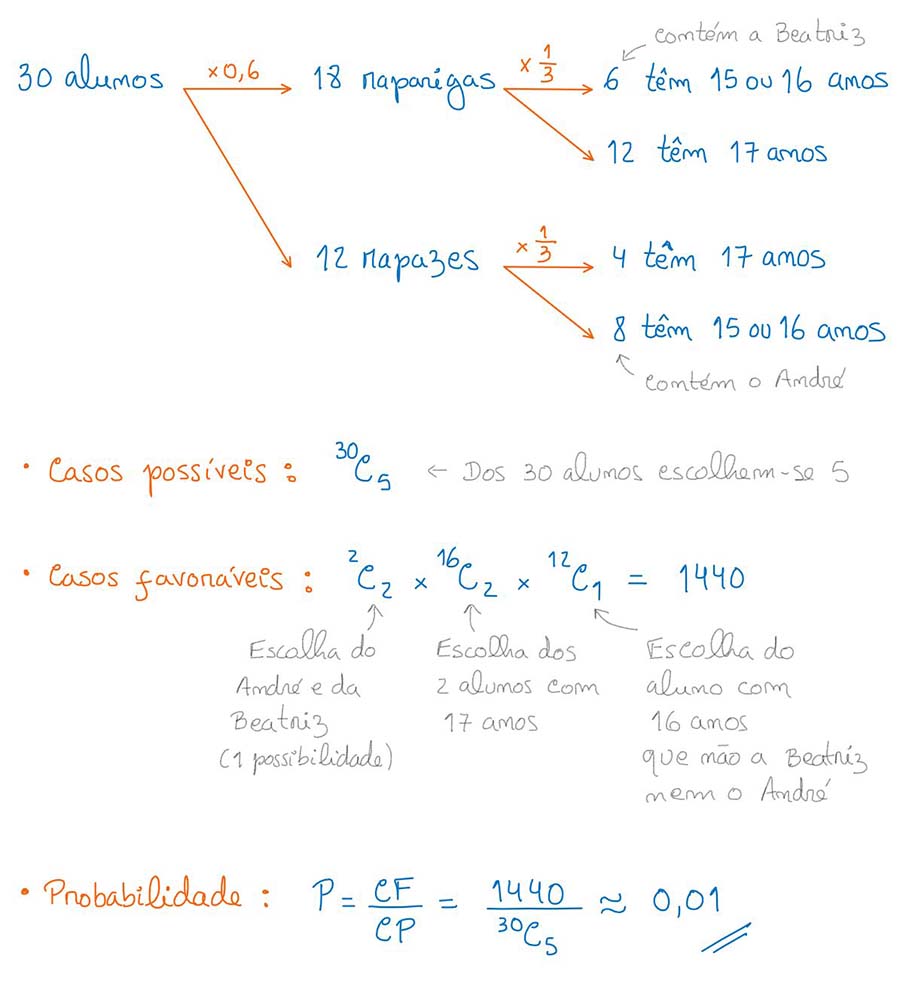 contém a Beatriz
30 alunos ×0,6 18 raparigas × 1/3 6 têm 15 ou 16 anos
12 têm 17 anos
12 rapazes × 1/3 4 têm 17 anos
8 têm 15 ou 16 anos
contém o André
• Casos possíveis : ³⁰C₅ ← Dos 30 alunos escolhem-se 5
• Casos favoráveis : ²C₂ × ¹⁶C₂ × ¹²C₁ = 1440
Escolha do
André e da
Beatriz
(1 possibilidade)
Escolha dos
2 alunos com
17 anos
Escolha do
aluno com
16 anos
que não a Beatriz
nem o André
• Probabilidade : P = CF/CP = 1440/³⁰C₅ ≈ 0,01